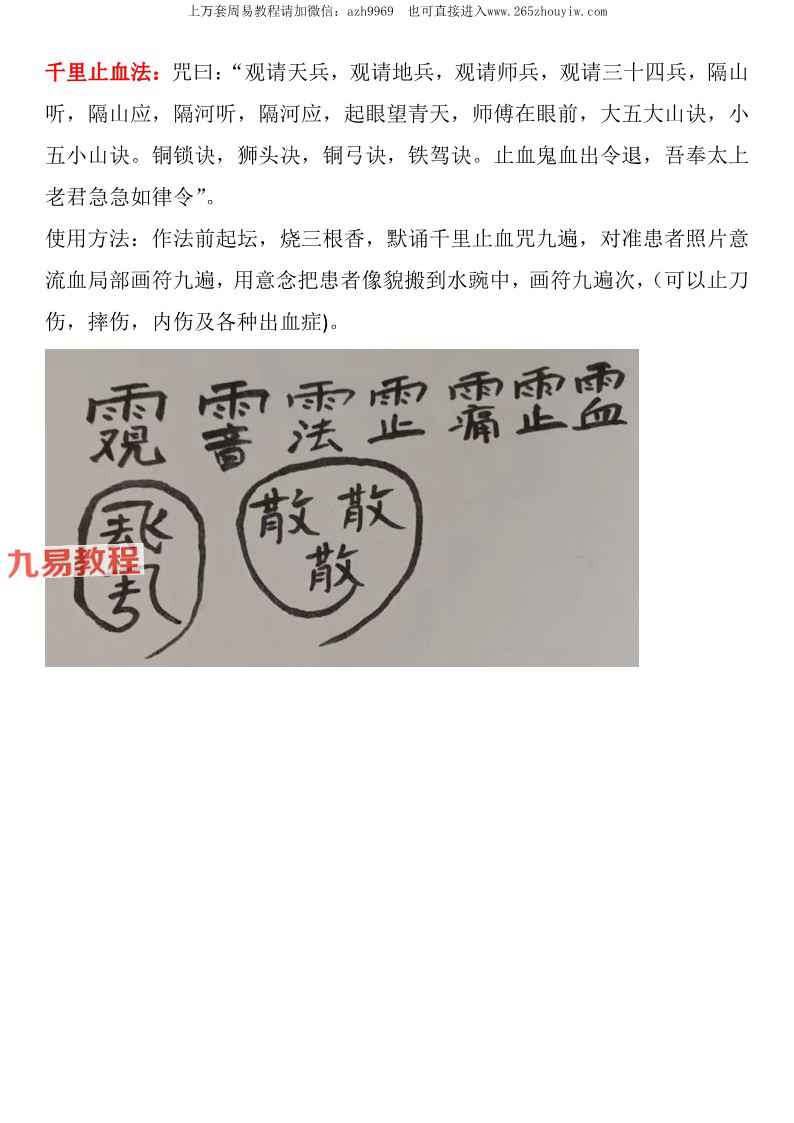 上万套周易教程请加微信：azh9969 也可直接进入www.265zhouyiw.com
千里止血法：咒曰：“观请天兵，观请地兵，观请师兵，观请三十四兵，隔山
听，隔山应，隔河听，隔河应，起眼望青天，师傅在眼前，大五大山诀，小
五小山诀。铜锁诀，狮头决，铜弓诀，铁驾诀。止血鬼血出令退，吾奉太上
老君急急如律令”。
使用方法：作法前起坛，烧三根香，默诵千里止血咒九遍，对准患者照片意
流血局部画符九遍，用意念把患者像貌搬到水豌中，画符九遍次，（可以止刀
伤，摔伤，内伤及各种出血症)。
散 散
散
九易教程